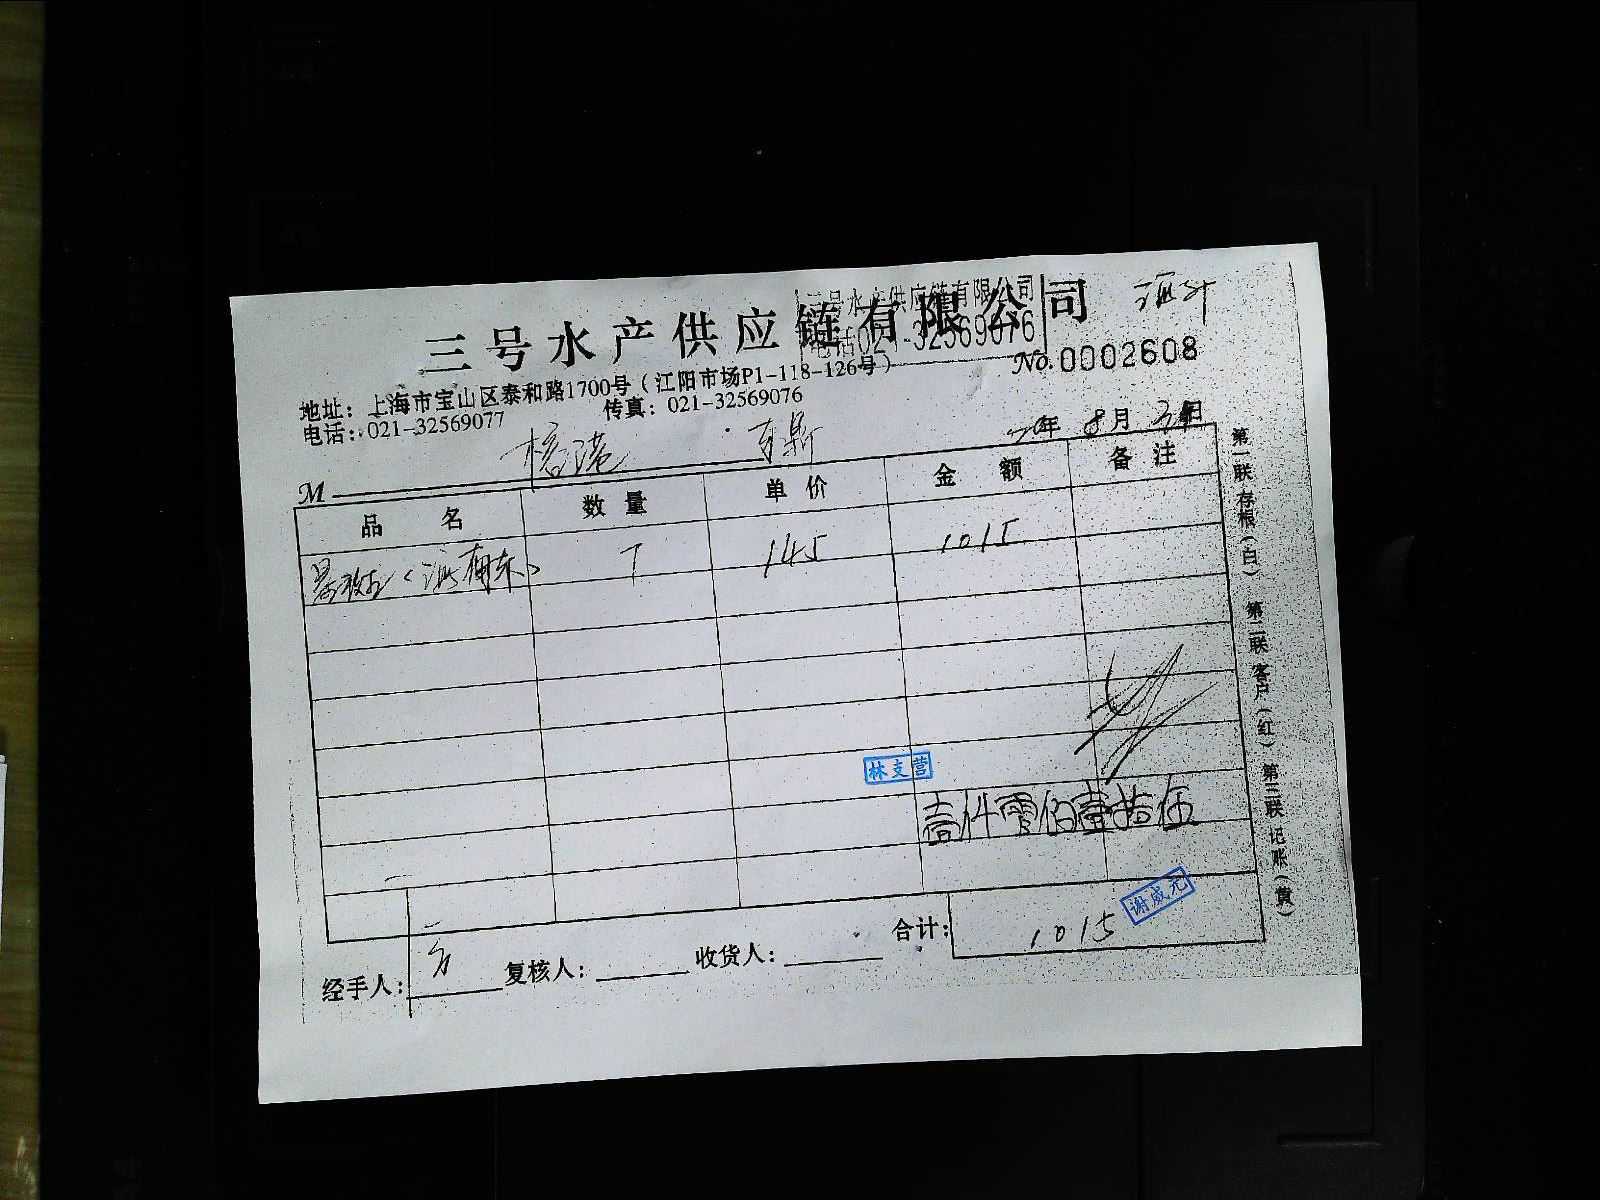 三号水产供应链有限公司
三号水产供应链有限公司
电话021-32569076
No.0002608
地址：上海市宝山区泰和路1700号（江阳市场P1-118-126号）
电话：021-32569077 传真：021-32569076
年 8月 日
M
品 名 数 量 单 价 金 额 备 注
7 145 1015
林支营
壹仟零佰壹拾伍
合计： 1015
谢咸元
经手人： 复核人： 收货人：
第一联 存根（白） 第二联 客户（红） 第三联 记账（黄）